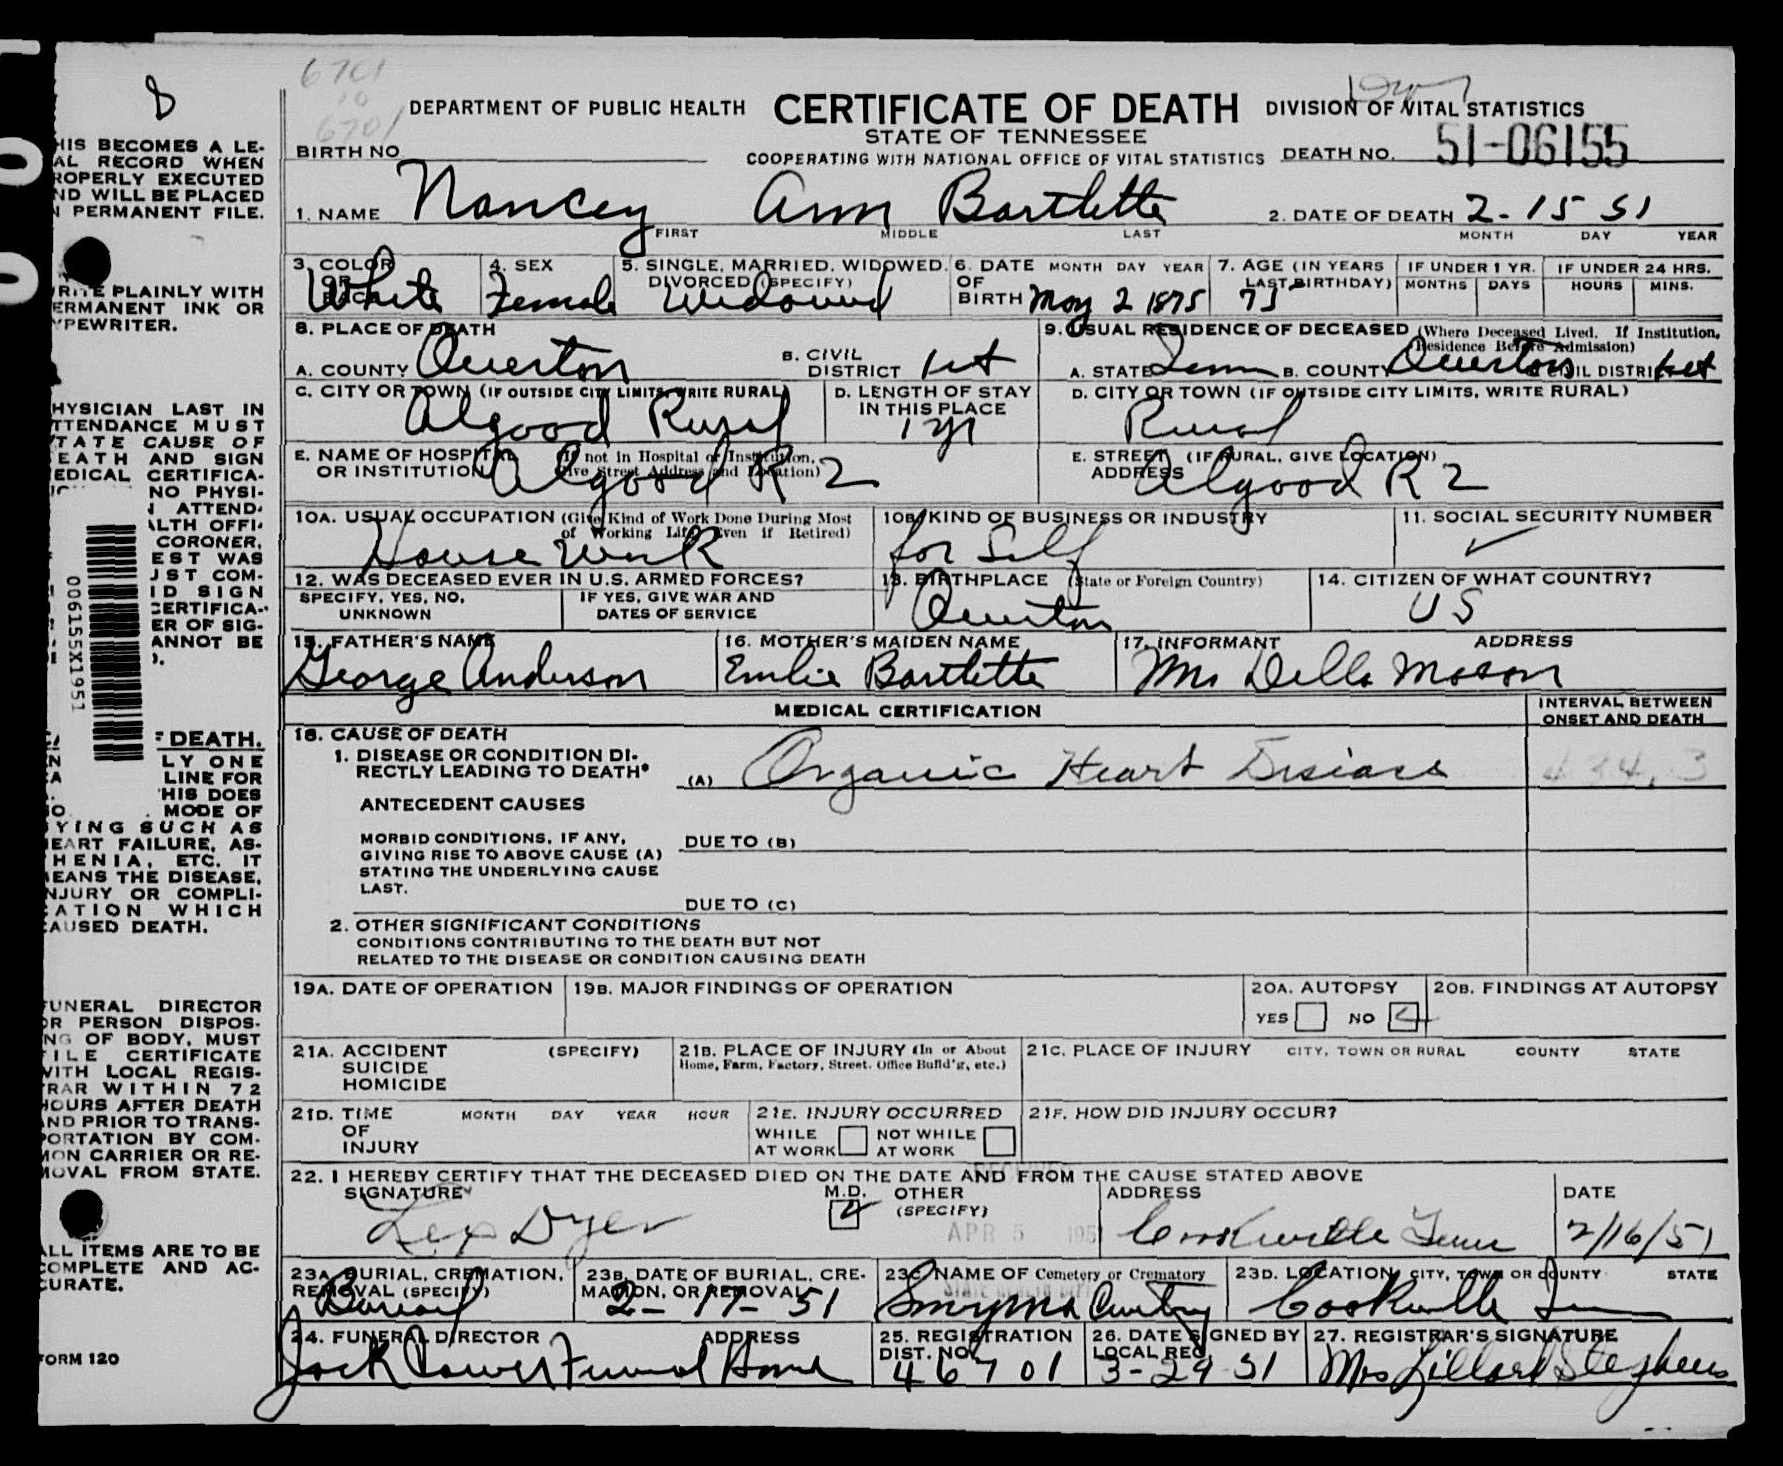 8
6701
10
6701
DEPARTMENT OF PUBLIC HEALTH CERTIFICATE OF DEATH DIVISION OF VITAL STATISTICS
STATE OF TENNESSEE
BIRTH NO. COOPERATING WITH NATIONAL OFFICE OF VITAL STATISTICS DEATH NO. 51-06155
1. NAME Nancey Ann Bartlette 2. DATE OF DEATH 2-15 51
FIRST MIDDLE LAST MONTH DAY YEAR
3. COLOR OR RACE White 4. SEX Female 5. SINGLE, MARRIED, WIDOWED, DIVORCED (SPECIFY) Widowed 6. DATE OF BIRTH MONTH DAY YEAR May 2 1875 7. AGE (IN YEARS LAST BIRTHDAY) 75 IF UNDER 1 YR. MONTHS DAYS IF UNDER 24 HRS. HOURS MINS.
8. PLACE OF DEATH 9. USUAL RESIDENCE OF DECEASED (Where Deceased Lived. If Institution, Residence Before Admission)
A. COUNTY Overton B. CIVIL DISTRICT 1st A. STATE Tenn B. COUNTY Overton CIVIL DISTRICT 1st
C. CITY OR TOWN (IF OUTSIDE CITY LIMITS, WRITE RURAL) Algood Rural D. LENGTH OF STAY IN THIS PLACE 1 yr D. CITY OR TOWN (IF OUTSIDE CITY LIMITS, WRITE RURAL) Rural
E. NAME OF HOSPITAL OR INSTITUTION (If not in Hospital or Institution, Give Street Address and Location) Algood R 2 E. STREET ADDRESS (IF RURAL, GIVE LOCATION) Algood R 2
10A. USUAL OCCUPATION (Give Kind of Work Done During Most of Working Life, Even if Retired) House Work 10B. KIND OF BUSINESS OR INDUSTRY for Self 11. SOCIAL SECURITY NUMBER ✓
12. WAS DECEASED EVER IN U.S. ARMED FORCES? SPECIFY, YES, NO, UNKNOWN IF YES, GIVE WAR AND DATES OF SERVICE 13. BIRTHPLACE (State or Foreign Country) Overton 14. CITIZEN OF WHAT COUNTRY? US
15. FATHER'S NAME George Anderson 16. MOTHER'S MAIDEN NAME Emlie Bartlette 17. INFORMANT ADDRESS Mrs Della Mason
MEDICAL CERTIFICATION INTERVAL BETWEEN ONSET AND DEATH
18. CAUSE OF DEATH
1. DISEASE OR CONDITION DIRECTLY LEADING TO DEATH* (A) Organic Heart Disease 434.3
ANTECEDENT CAUSES
MORBID CONDITIONS, IF ANY, GIVING RISE TO ABOVE CAUSE (A) STATING THE UNDERLYING CAUSE LAST.
DUE TO (B)
DUE TO (C)
2. OTHER SIGNIFICANT CONDITIONS
CONDITIONS CONTRIBUTING TO THE DEATH BUT NOT
RELATED TO THE DISEASE OR CONDITION CAUSING DEATH
19A. DATE OF OPERATION 19B. MAJOR FINDINGS OF OPERATION 20A. AUTOPSY YES NO 20B. FINDINGS AT AUTOPSY
21A. ACCIDENT SUICIDE HOMICIDE (SPECIFY) 21B. PLACE OF INJURY (In or About Home, Farm, Factory, Street, Office Build'g, etc.) 21C. PLACE OF INJURY CITY, TOWN OR RURAL COUNTY STATE
21D. TIME OF INJURY MONTH DAY YEAR HOUR 21E. INJURY OCCURRED WHILE AT WORK NOT WHILE AT WORK 21F. HOW DID INJURY OCCUR?
22. I HEREBY CERTIFY THAT THE DECEASED DIED ON THE DATE AND FROM THE CAUSE STATED ABOVE
SIGNATURE Lex Dyer M.D. OTHER (SPECIFY) ADDRESS Cookeville Tenn DATE 2/16/51
APR 5 1951
23A. BURIAL, CREMATION, REMOVAL (SPECIFY) Burial 23B. DATE OF BURIAL, CREMATION, OR REMOVAL 2-17-51 23C. NAME OF Cemetery or Crematory Smyrna 23D. LOCATION CITY, TOWN OR COUNTY STATE Cookville
24. FUNERAL DIRECTOR ADDRESS Jack Funeral Home 25. REGISTRATION DIST. NO. 46701 26. DATE SIGNED BY LOCAL REG. 3-29-51 27. REGISTRAR'S SIGNATURE Mrs Lillard Stephens
HIS BECOMES A LE-
AL RECORD WHEN
ROPERLY EXECUTED
ND WILL BE PLACED
N PERMANENT FILE.
RITE PLAINLY WITH
ERMANENT INK OR
YPEWRITER.
HYSICIAN LAST IN
TTENDANCE MUST
TATE CAUSE OF
EATH AND SIGN
EDICAL CERTIFICA-
NO PHYSI-
ATTEND-
LTH OFFI-
CORONER,
EST WAS
UST COM-
ID SIGN
CERTIFICA-
ER OF SIG-
ANNOT BE
006155X1951
DEATH.
LY ONE
LINE FOR
HIS DOES
MODE OF
YING SUCH AS
EART FAILURE, AS-
HENIA, ETC. IT
EANS THE DISEASE,
NJURY OR COMPLI-
ATION WHICH
AUSED DEATH.
UNERAL DIRECTOR
OR PERSON DISPOS-
NG OF BODY, MUST
FILE CERTIFICATE
WITH LOCAL REGIS-
TRAR WITHIN 72
HOURS AFTER DEATH
AND PRIOR TO TRANS-
PORTATION BY COM-
MON CARRIER OR RE-
MOVAL FROM STATE.
ALL ITEMS ARE TO BE
COMPLETE AND AC-
CURATE.
FORM 120